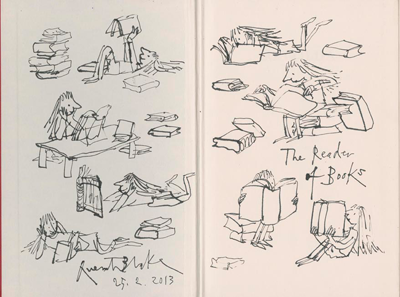 Quentin Blake
25. 2. 2013
The Reader
of Books